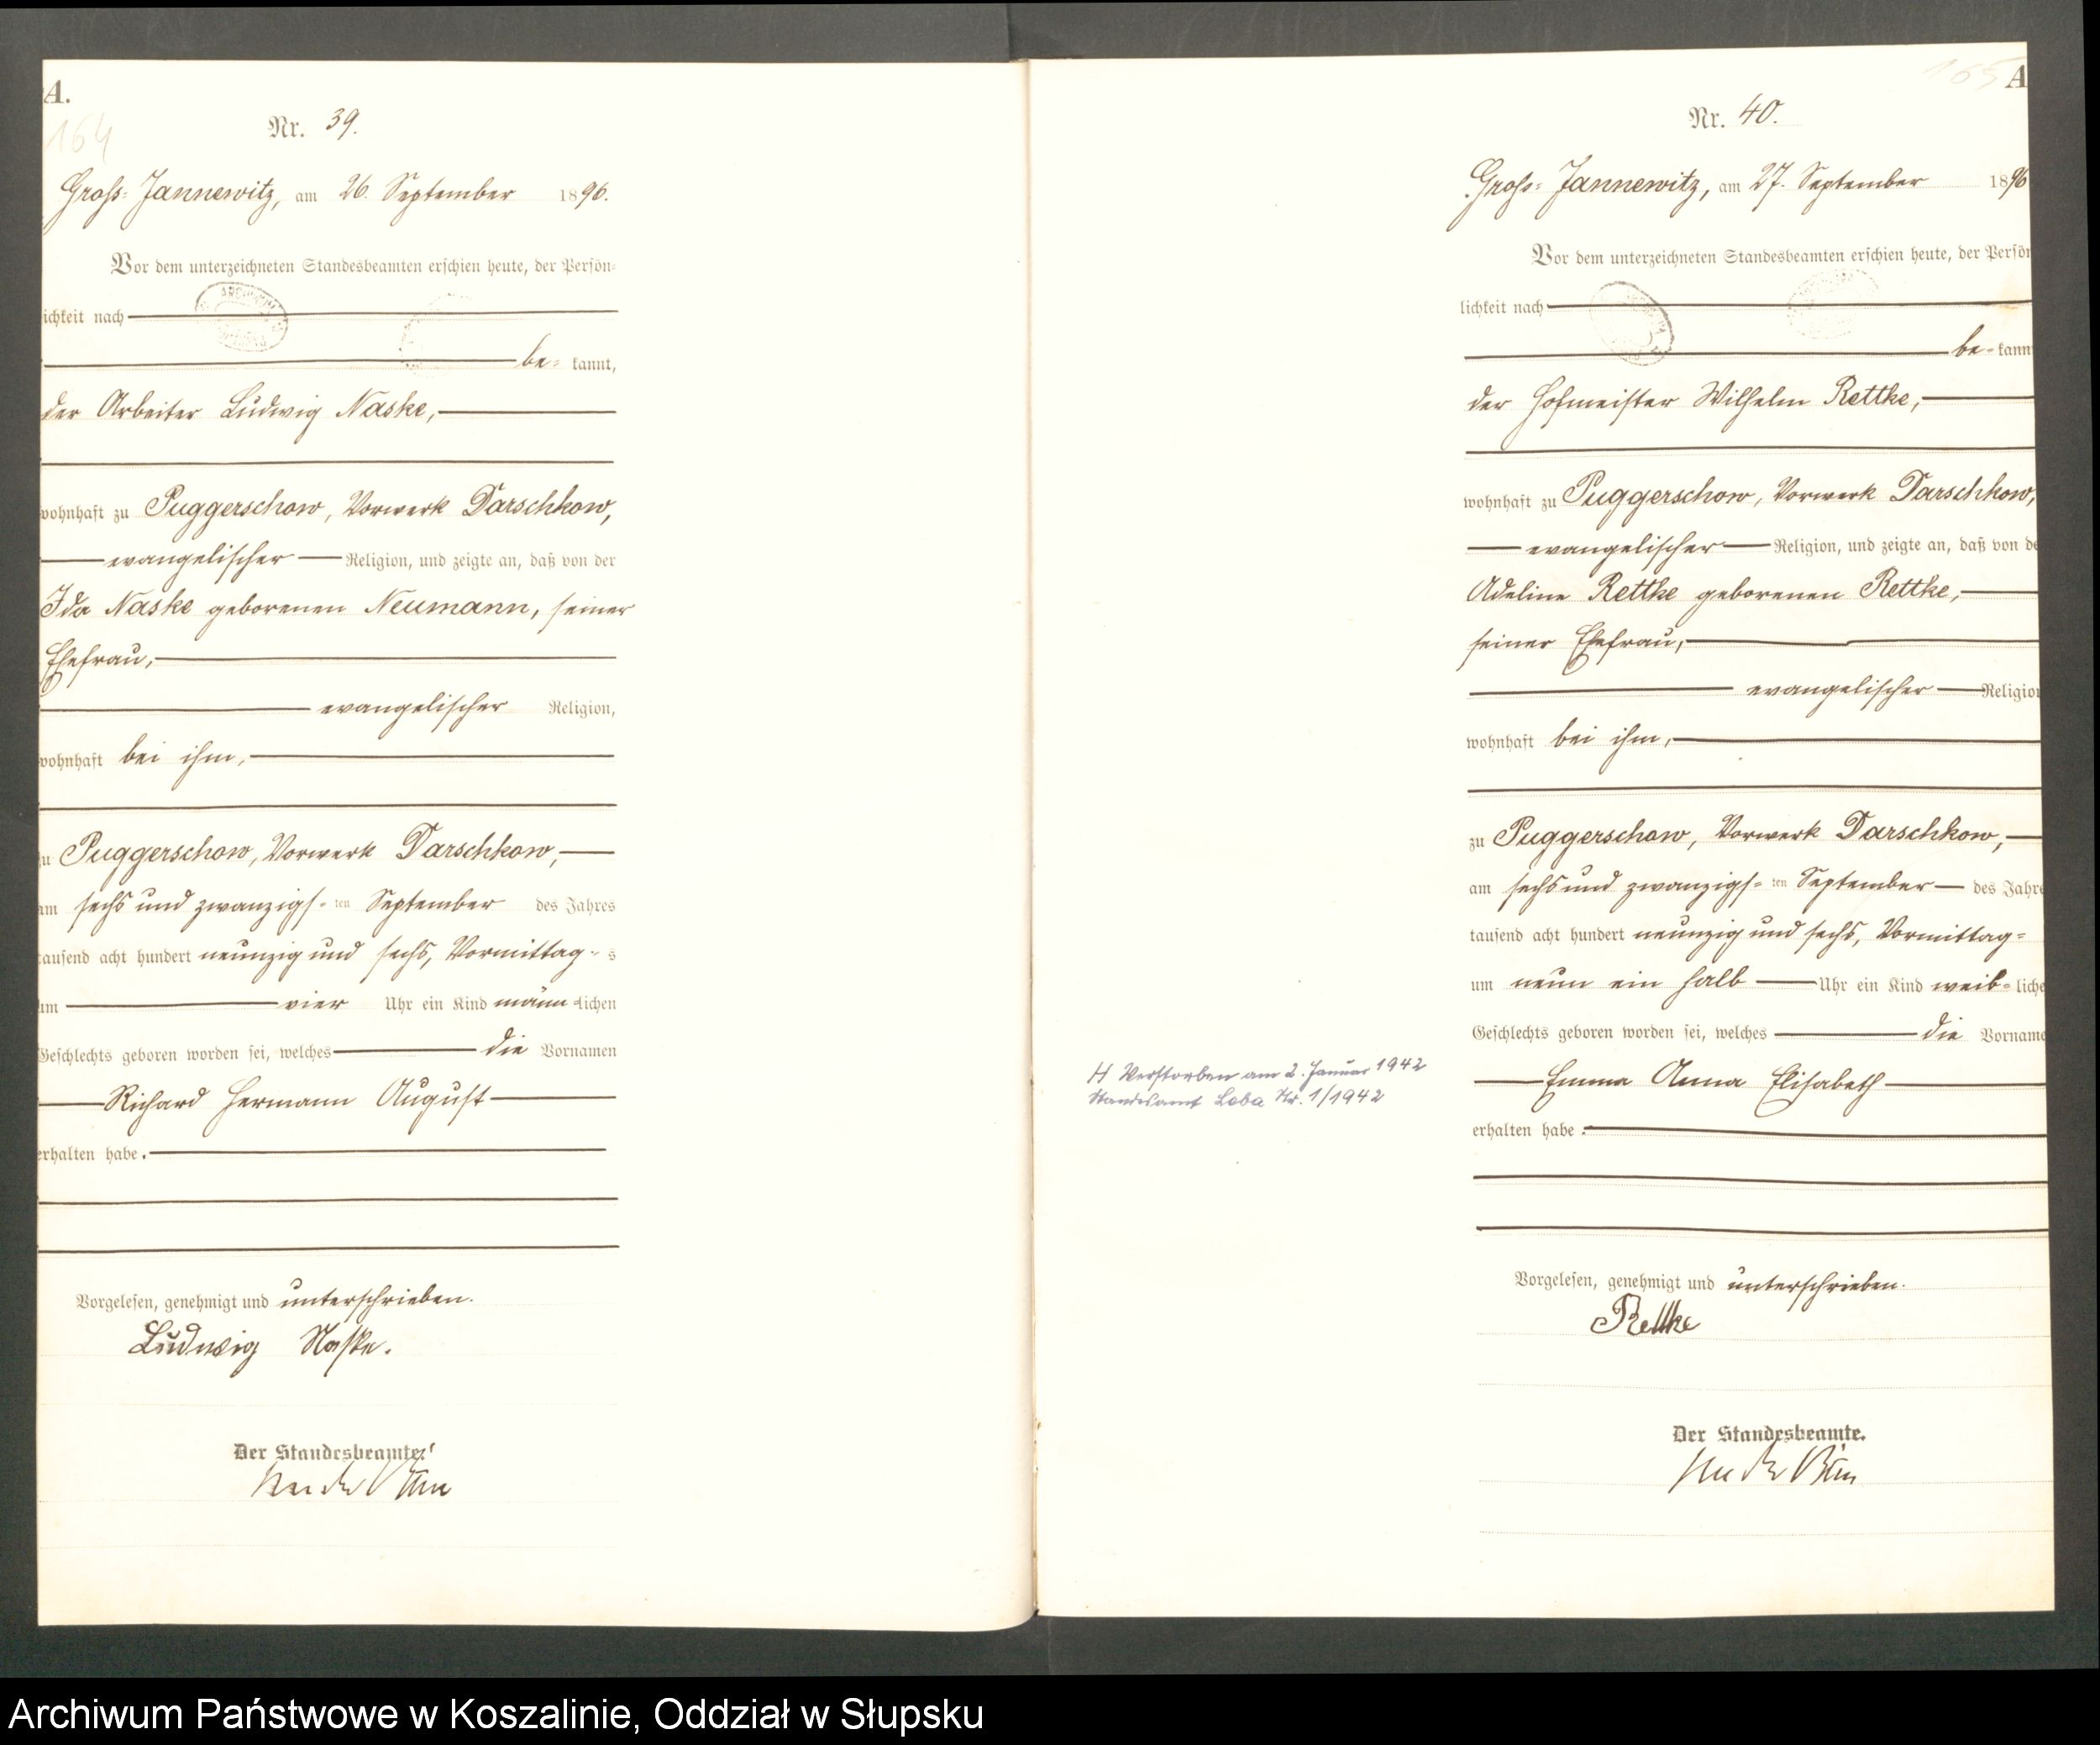 A.
164
Nr. 39.
Groß-Jannewitz, am 26. September 1896.
Vor dem unterzeichneten Standesbeamten erschien heute, der Persön-
ichkeit nach
be- kannt,
der Arbeiter Ludwig Naske,
wohnhaft zu Puggerschow, Vorwerk Darschkow,
evangelischer Religion, und zeigte an, daß von der
Ida Naske geborenen Neumann, seiner
Ehefrau,
evangelischer Religion,
wohnhaft bei ihm,
zu Puggerschow, Vorwerk Darschkow,
am sechs und zwanzigs-ten September des Jahres
tausend acht hundert neunzig und sechs, Vormittag-s
um vier Uhr ein Kind männ-lichen
Geschlechts geboren worden sei, welches die Vornamen
Richard Hermann August
erhalten habe.
Vorgelesen, genehmigt und unterschrieben.
Ludwig Naske.
Der Standesbeamte.
165
A
Nr. 40.
Groß-Jannewitz, am 27. September 1896
Vor dem unterzeichneten Standesbeamten erschien heute, der Persön
lichkeit nach
be-kann
der Hofmeister Wilhelm Rettke,
wohnhaft zu Puggerschow, Vorwerk Darschkow,
evangelischer Religion, und zeigte an, daß von de
Adeline Rettke geborenen Rettke,
seiner Ehefrau,
evangelischer Religion
wohnhaft bei ihm,
zu Puggerschow, Vorwerk Darschkow,
am sechs und zwanzigs-ten September des Jahre
tausend acht hundert neunzig und sechs, Vormittag-
um neun ein halb Uhr ein Kind weib-liche
Geschlechts geboren worden sei, welches die Vorname
Emma Anna Elisabeth
erhalten habe.
H Verstorben am 2. Januar 1942
Standesamt Leba Nr. 1/1942
Vorgelesen, genehmigt und unterschrieben.
Rettke
Der Standesbeamte.
Archiwum Państwowe w Koszalinie, Oddział w Słupsku